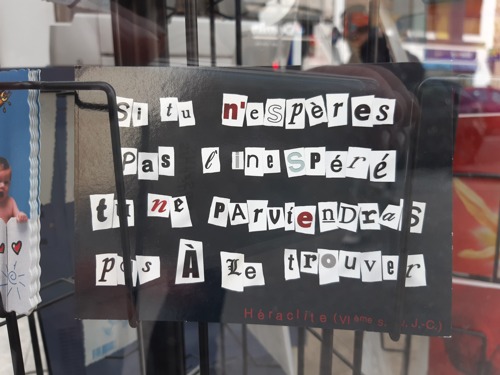 Si tu n'espères
pas l'inespéré
tu ne parviendras
pas À Le trouver
Héraclite (VIème J.-C.)